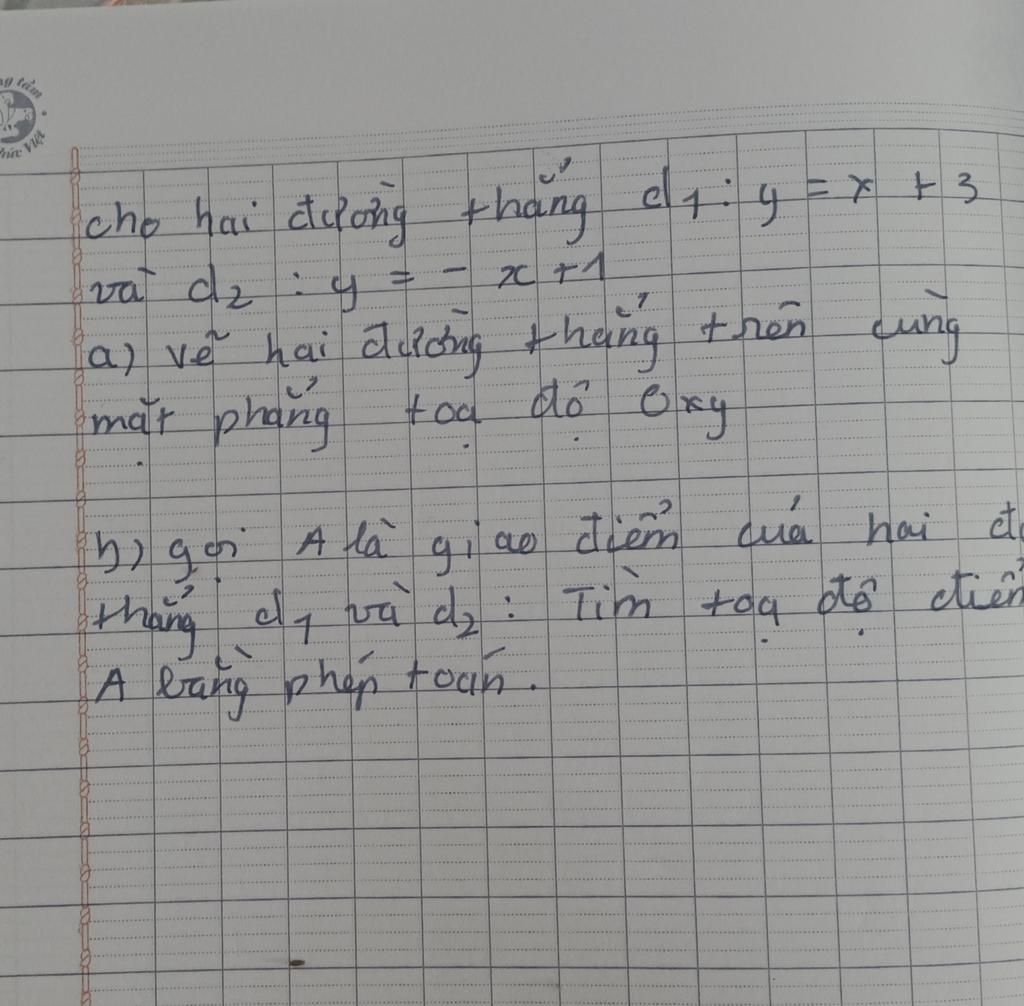 cho hai đường thẳng d1: y = x + 3
và d2 : y = - x + 1
a) vẽ hai đường thẳng trên cùng
mặt phẳng toạ độ Oxy
b) gọi A là giao điểm cuả hai
thẳng d1 và d2 : Tìm toạ độ
A bằng phép toán.